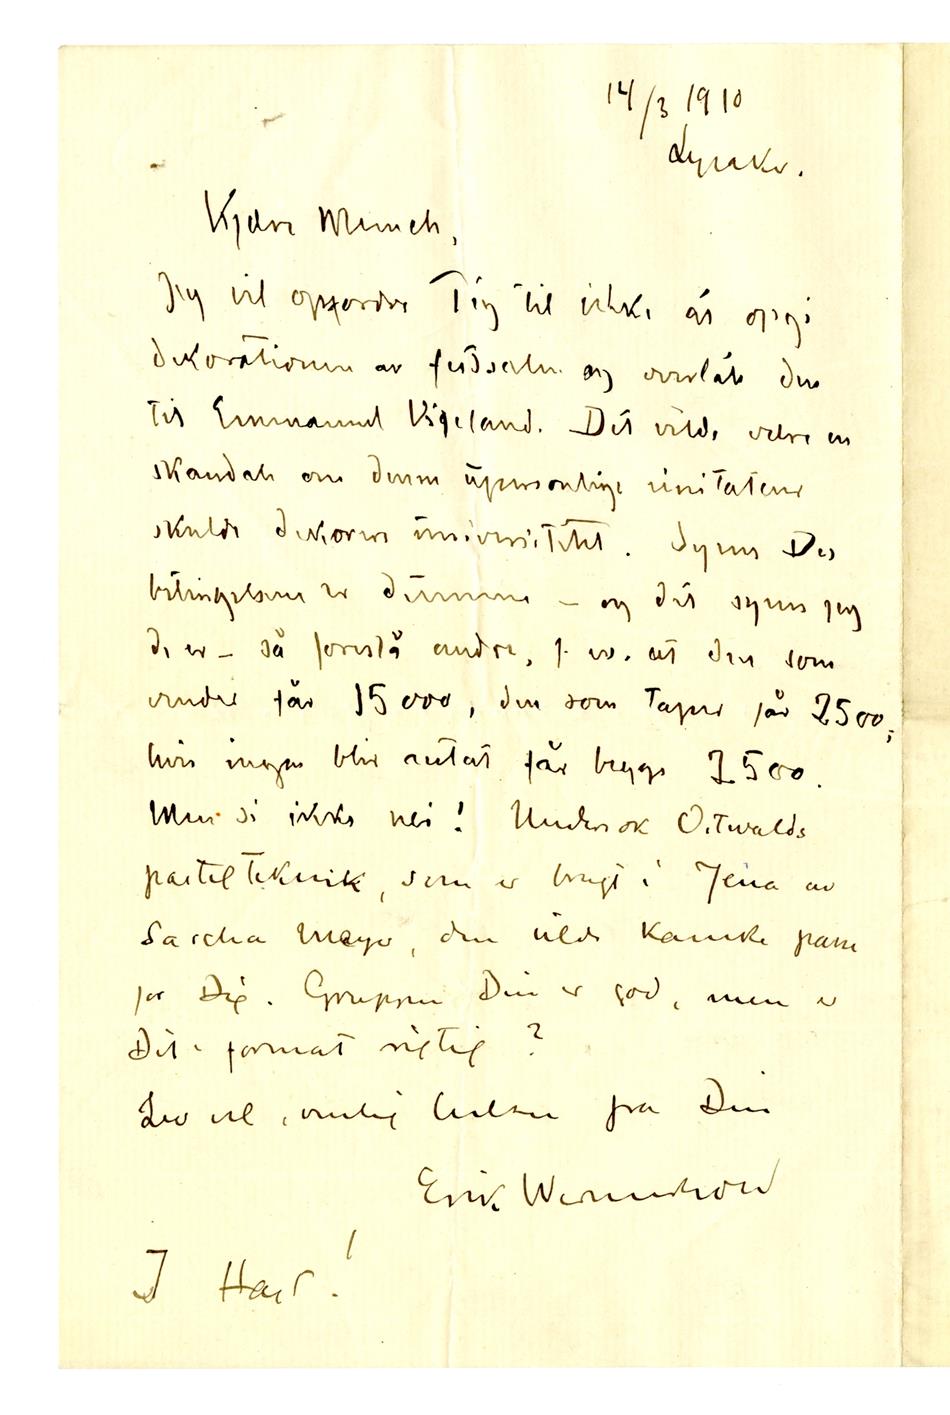 14/3 1910
Lysaker.
Kjære Munch,
Jeg vil opfordre Dig til ikke at opgi
dekorationen av festsalen og overlate den
til Emmanuel Vigeland. Det vilde være en
skandale om denne upersonlige imitatør
skulde dekorere universitetet. Synes Du
betingelsene er dumme – og det synes jeg
de er – så foreslå andre, f. ex. at den som
vinder får 15000, den som taper får 2500,
hvis ingen blir antat får begge 7500.
Men si ikke nei! Undersøk Ostwalds
pastelteknik, som er brugt i Jena av
Sascha
den vilde kanske passe
for Dig. Gruppen Din er god, men er
Dit format rigtig?
Lev vel, venlig hilsen fra Din
Erik Werenskiold
I Hast!